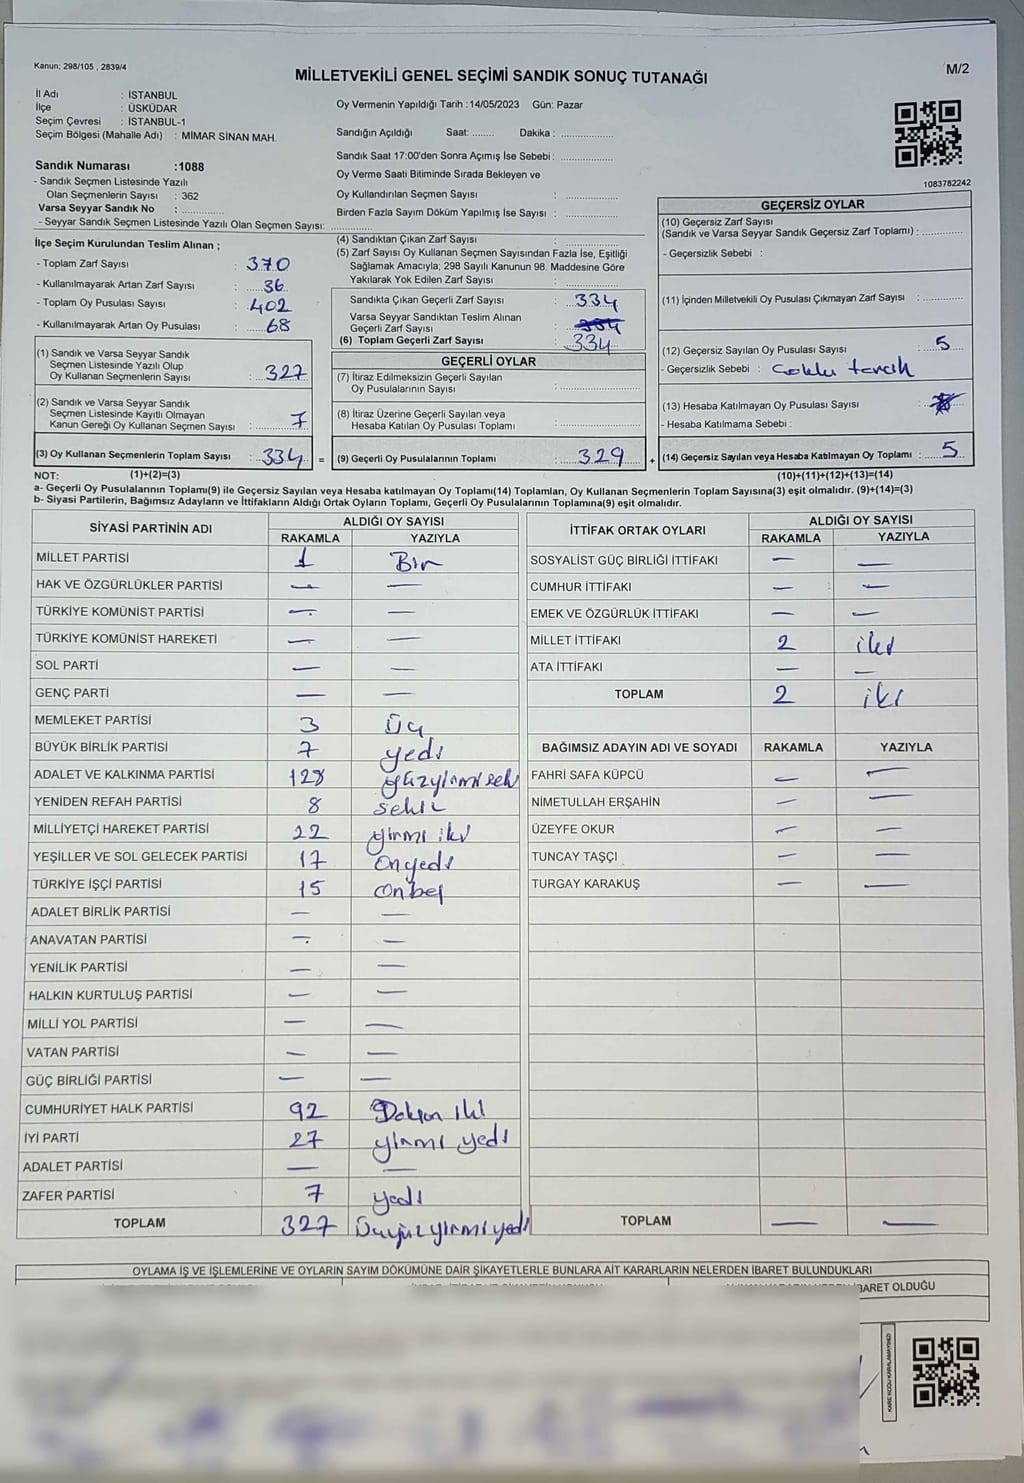 Kanun; 298/105 , 2839/4
MİLLETVEKİLİ GENEL SEÇİMİ SANDIK SONUÇ TUTANAĞI
M/2
İl Adı : İSTANBUL
İlçe : ÜSKÜDAR
Seçim Çevresi : İSTANBUL-1
Seçim Bölgesi (Mahalle Adı) : MİMAR SİNAN MAH.
Sandık Numarası :1088
- Sandık Seçmen Listesinde Yazılı
Olan Seçmenlerin Sayısı : 362
Varsa Seyyar Sandık No : ............
- Seyyar Sandık Seçmen Listesinde Yazılı Olan Seçmen Sayısı: ............
Oy Vermenin Yapıldığı Tarih :14/05/2023 Gün: Pazar
Sandığın Açıldığı Saat: ........ Dakika : ................
Sandık Saat 17:00'den Sonra Açımış İse Sebebi : ................
Oy Verme Saati Bitiminde Sırada Bekleyen ve
Oy Kullandırılan Seçmen Sayısı : ................
Birden Fazla Sayım Döküm Yapılmış İse Sayısı : ................
1083782242
İlçe Seçim Kurulundan Teslim Alınan ;
- Toplam Zarf Sayısı : 370
- Kullanılmayarak Artan Zarf Sayısı : 36
- Toplam Oy Pusulası Sayısı : 402
- Kullanılmayarak Artan Oy Pusulası : 68
(1) Sandık ve Varsa Seyyar Sandık
Seçmen Listesinde Yazılı Olup
Oy Kullanan Seçmenlerin Sayısı : 327
(2) Sandık ve Varsa Seyyar Sandık
Seçmen Listesinde Kayıtlı Olmayan
Kanun Gereği Oy Kullanan Seçmen Sayısı : 7
(3) Oy Kullanan Seçmenlerin Toplam Sayısı : 334 =
(4) Sandıktan Çıkan Zarf Sayısı : ................
(5) Zarf Sayısı Oy Kullanan Seçmen Sayısından Fazla İse, Eşitliği
Sağlamak Amacıyla; 298 Sayılı Kanunun 98. Maddesine Göre
Yakılarak Yok Edilen Zarf Sayısı : ................
Sandıkta Çıkan Geçerli Zarf Sayısı : 334
Varsa Seyyar Sandıktan Teslim Alınan
Geçerli Zarf Sayısı :
(6) Toplam Geçerli Zarf Sayısı : 334
GEÇERLİ OYLAR
(7) İtiraz Edilmeksizin Geçerli Sayılan
Oy Pusulalarının Sayısı : ................
(8) İtiraz Üzerine Geçerli Sayılan veya
Hesaba Katılan Oy Pusulası Toplamı : ................
(9) Geçerli Oy Pusulalarının Toplamı : 329 +
GEÇERSİZ OYLAR
(10) Geçersiz Zarf Sayısı
(Sandık ve Varsa Seyyar Sandık Geçersiz Zarf Toplamı) : ............
- Geçersizlik Sebebi :
(11) İçinden Milletvekili Oy Pusulası Çıkmayan Zarf Sayısı : ............
(12) Geçersiz Sayılan Oy Pusulası Sayısı : 5
- Geçersizlik Sebebi : Çoklu tercih
(13) Hesaba Katılmayan Oy Pusulası Sayısı :
- Hesaba Katılmama Sebebi :
(14) Geçersiz Sayılan veya Hesaba Katılmayan Oy Toplamı : 5
NOT: (1)+(2)=(3) (10)+(11)+(12)+(13)=(14)
a- Geçerli Oy Pusulalarının Toplamı(9) ile Geçersiz Sayılan veya Hesaba katılmayan Oy Toplamı(14) Toplamları, Oy Kullanan Seçmenlerin Toplam Sayısına(3) eşit olmalıdır. (9)+(14)=(3)
b- Siyasi Partilerin, Bağımsız Adayların ve İttifakların Aldığı Ortak Oyların Toplamı, Geçerli Oy Pusulalarının Toplamına(9) eşit olmalıdır.
SİYASİ PARTİNİN ADI ALDIĞI OY SAYISI
RAKAMLA YAZIYLA
MİLLET PARTİSİ 1 Bir
HAK VE ÖZGÜRLÜKLER PARTİSİ — —
TÜRKİYE KOMÜNİST PARTİSİ — —
TÜRKİYE KOMÜNİST HAREKETİ — —
SOL PARTİ — —
GENÇ PARTİ — —
MEMLEKET PARTİSİ 3 Üç
BÜYÜK BİRLİK PARTİSİ 7 yedi
ADALET VE KALKINMA PARTİSİ 128 yüzyirmisek
YENİDEN REFAH PARTİSİ 8 sekiz
MİLLİYETÇİ HAREKET PARTİSİ 22 yirmi iki
YEŞİLLER VE SOL GELECEK PARTİSİ 17 Onyedi
TÜRKİYE İŞÇİ PARTİSİ 15 Onbeş
ADALET BİRLİK PARTİSİ — —
ANAVATAN PARTİSİ — —
YENİLİK PARTİSİ — —
HALKIN KURTULUŞ PARTİSİ — —
MİLLİ YOL PARTİSİ — —
VATAN PARTİSİ — —
GÜÇ BİRLİĞİ PARTİSİ — —
CUMHURİYET HALK PARTİSİ 92 Doksan iki
İYİ PARTİ 27 yirmi yedi
ADALET PARTİSİ — —
ZAFER PARTİSİ 7 yedi
TOPLAM 327 Üçyüzyirmiyedi
İTTİFAK ORTAK OYLARI ALDIĞI OY SAYISI
RAKAMLA YAZIYLA
SOSYALİST GÜÇ BİRLİĞİ İTTİFAKI — —
CUMHUR İTTİFAKI — —
EMEK VE ÖZGÜRLÜK İTTİFAKI — —
MİLLET İTTİFAKI 2 iki
ATA İTTİFAKI — —
TOPLAM 2 iki
BAĞIMSIZ ADAYIN ADI VE SOYADI RAKAMLA YAZIYLA
FAHRİ SAFA KÜPCÜ — —
NİMETULLAH ERŞAHİN — —
ÜZEYFE OKUR — —
TUNCAY TAŞÇI — —
TURGAY KARAKUŞ — —
TOPLAM — —
OYLAMA İŞ VE İŞLEMLERİNE VE OYLARIN SAYIM DÖKÜMÜNE DAİR ŞİKAYETLERLE BUNLARA AİT KARARLARIN NELERDEN İBARET BULUNDUKLARI
İBARET OLDUĞU
KARE KODU KARALAMAYINIZ!